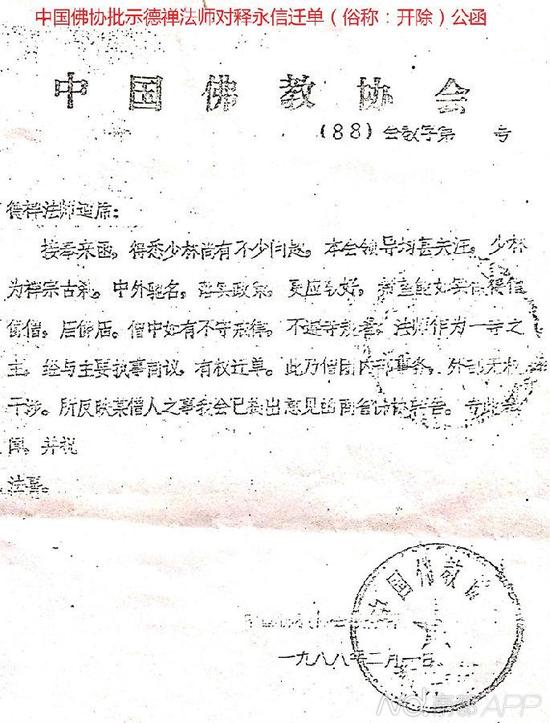 中国佛协批示德禅法师对释永信迁单（俗称：开除）公函
中国佛教协会
(88)会教字第 号
德禅法师莲席：
接奉来函，得悉少林尚有不少问题。本会领导均甚关注。少林
为禅宗古刹。中外驰名。落实政策，更应较好，
僧。居佛后。僧中如有不守戒律，不遵寺规者，法师作为一寺之
主，经与主要执事商议，有权迁单。此乃僧团内部事务，外部无权
干涉。所反映某僧人之事我会已提出意见函
闻，并祝
法喜。
中国佛教
一九八八年二月一日